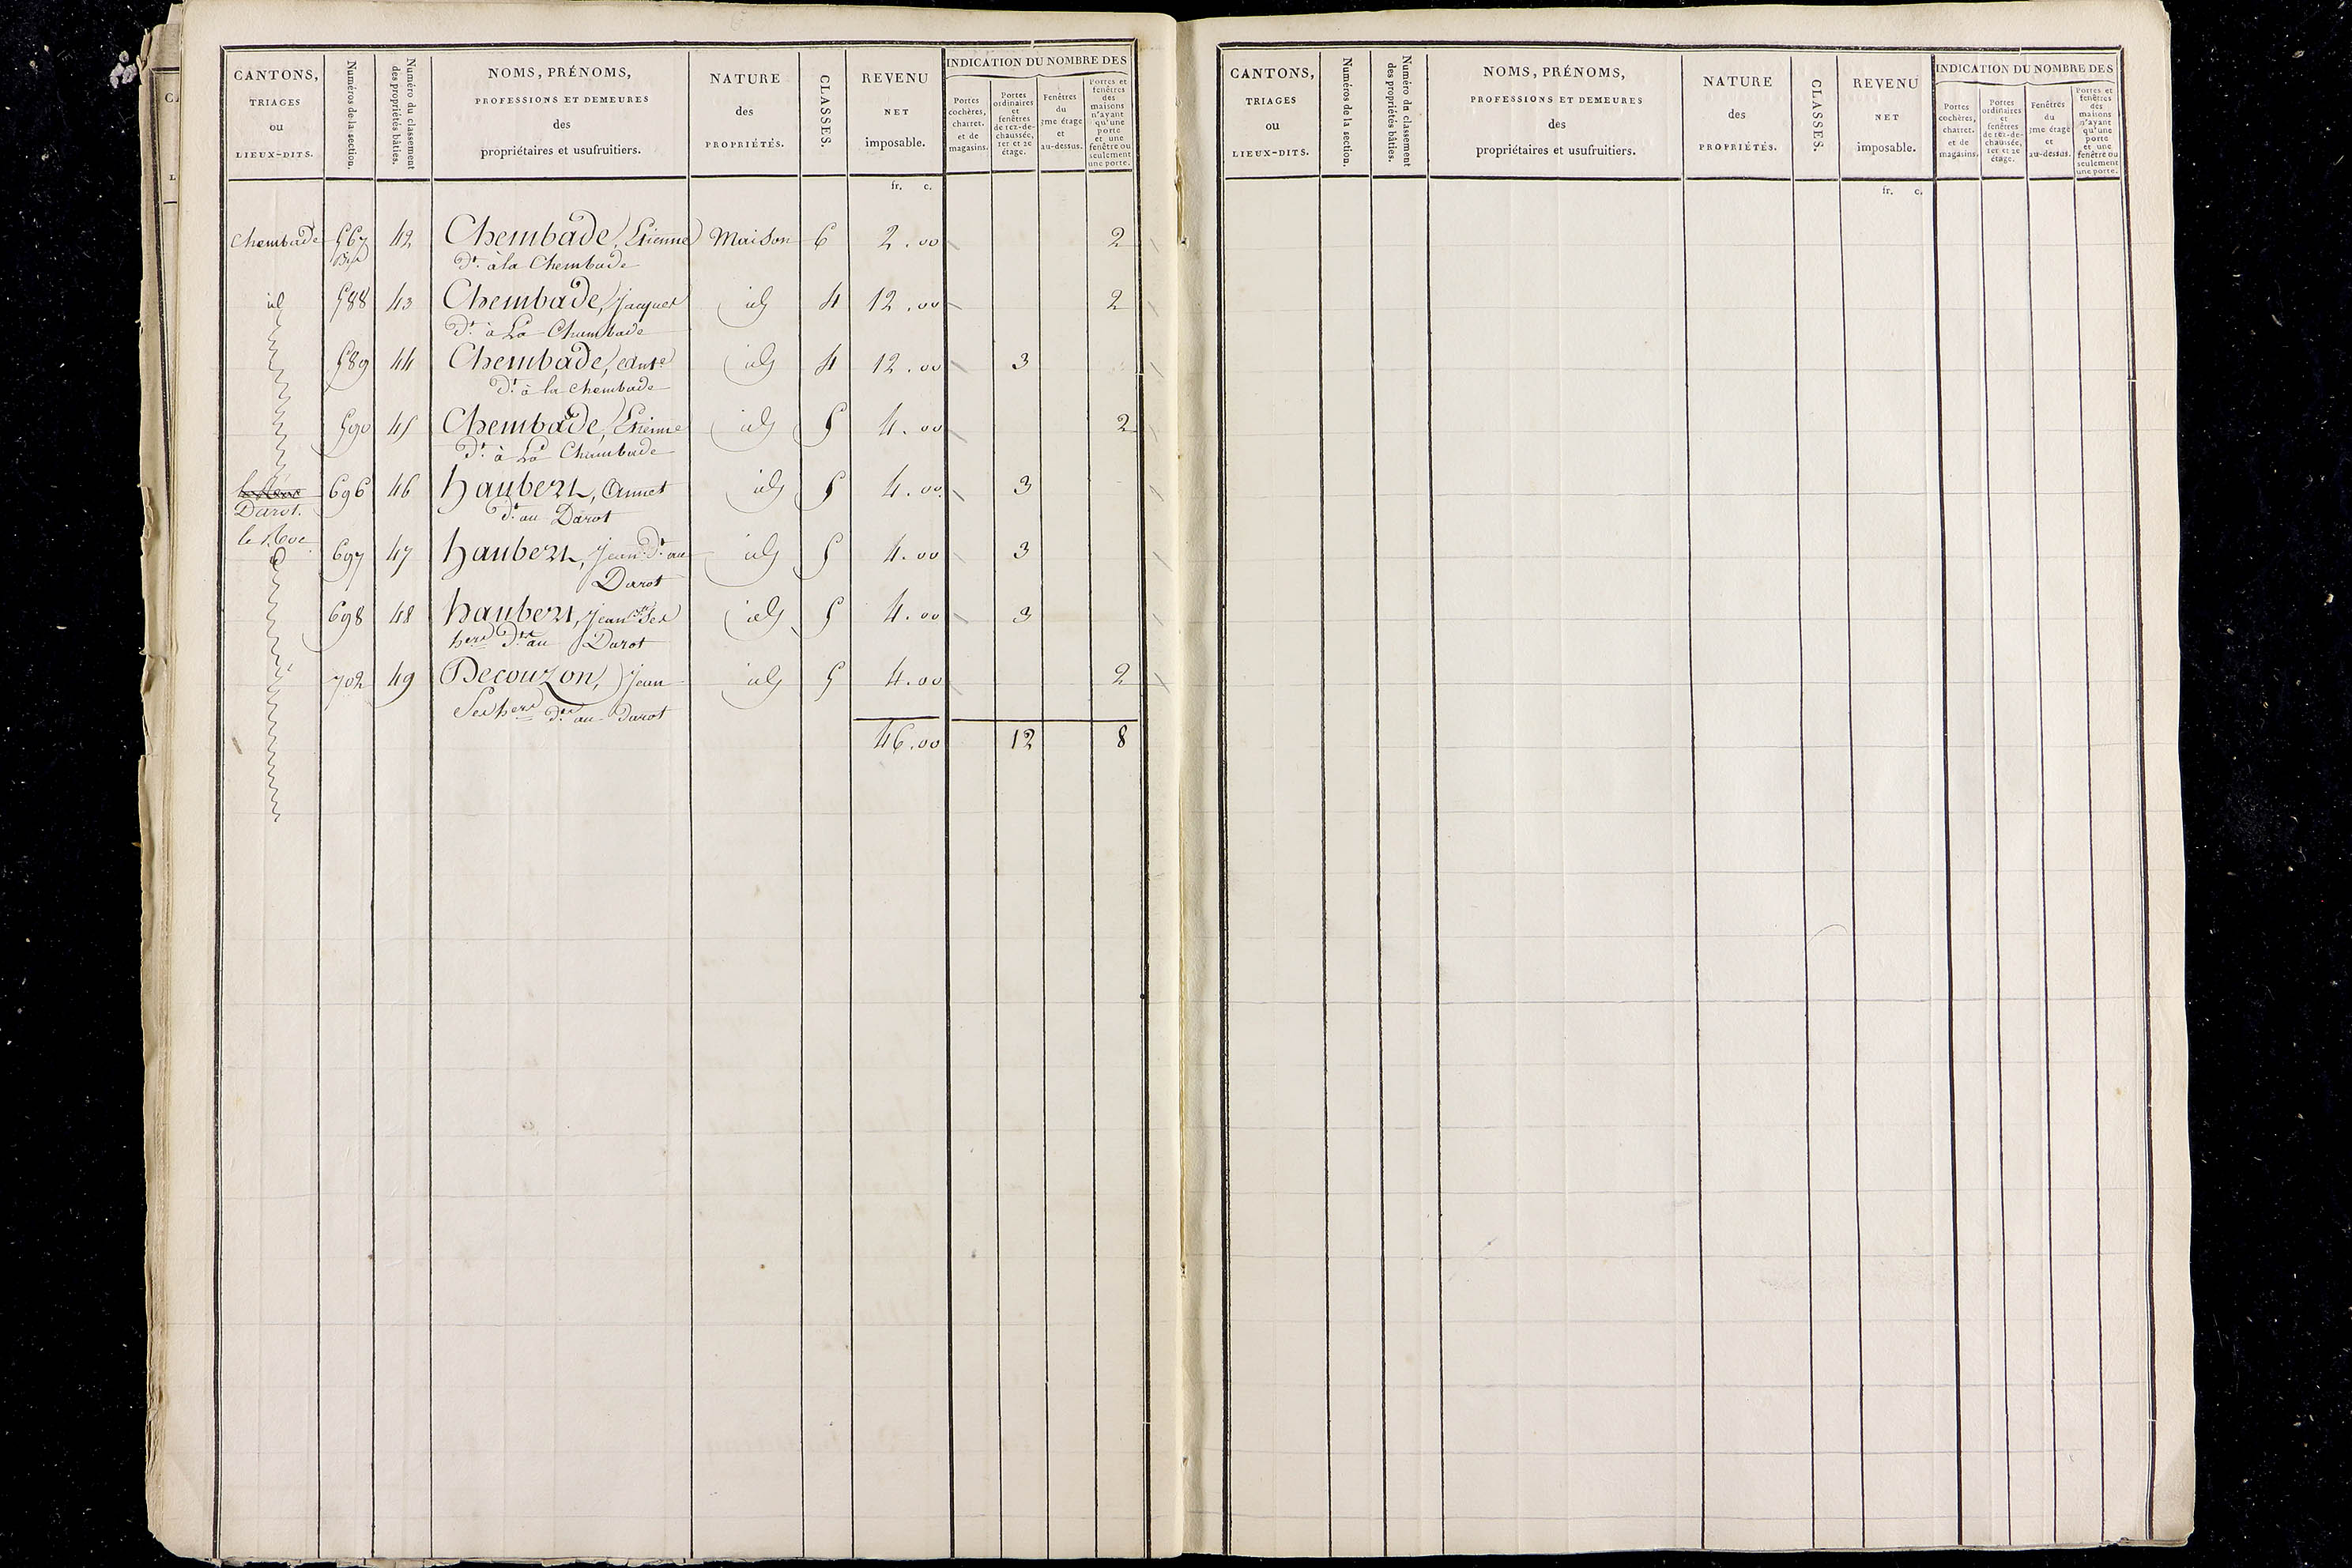 CANTONS, TRIAGES ou LIEUX-DITS. Numéros de la section. Numéro du classement des propriétés bâties. NOMS, PRÉNOMS, PROFESSIONS ET DEMEURES des propriétaires et usufruitiers. NATURE des PROPRIÉTÉS. CLASSES. REVENU NET imposable. INDICATION DU NOMBRE DES
Portes cochères, charret. et de magasins. Portes ordinaires et fenêtres de rez-de-chaussée, 1er et 2e étage. Fenêtres du 3me étage et au-dessus. Portes et fenêtres des maisons n'ayant qu'une porte et une fenêtre ou seulement une porte.
fr. c.
Chembade 567 42 Chembade, Etienne Maison 6 2.00 2
Bis dt. à la Chembade
id 588 43 Chembade, Jacques id 4 12.00 2
dt. à La Chambade
589 44 Chembade, Ante id 4 12.00 3
dt à la Chembade
590 45 Chembade, Etienne id 5 4.00 2
dt. à La Chambade
696 46 haubert, Annet id 5 4.00 3
Darot. dt au Darot
le
697 47 haubert, Jean dt au id 5 4.00 3
Darot
698 48 haubert, Jean Ses id 5 4.00 3
hers dts au Darot
702 49 Decouzon, Jean id 5 4.00 2
Ses hers dts au Darot
46.00 12 8
CANTONS, TRIAGES ou LIEUX-DITS. Numéros de la section. Numéro du classement des propriétés bâties. NOMS, PRÉNOMS, PROFESSIONS ET DEMEURES des propriétaires et usufruitiers. NATURE des PROPRIÉTÉS. CLASSES. REVENU NET imposable. INDICATION DU NOMBRE DES
Portes cochères, charret. et de magasins. Portes ordinaires et fenêtres de rez-de-chaussée, 1er et 2e étage. Fenêtres du 3me étage et au-dessus. Portes et fenêtres des maisons n'ayant qu'une porte et une fenêtre ou seulement une porte.
fr. c.